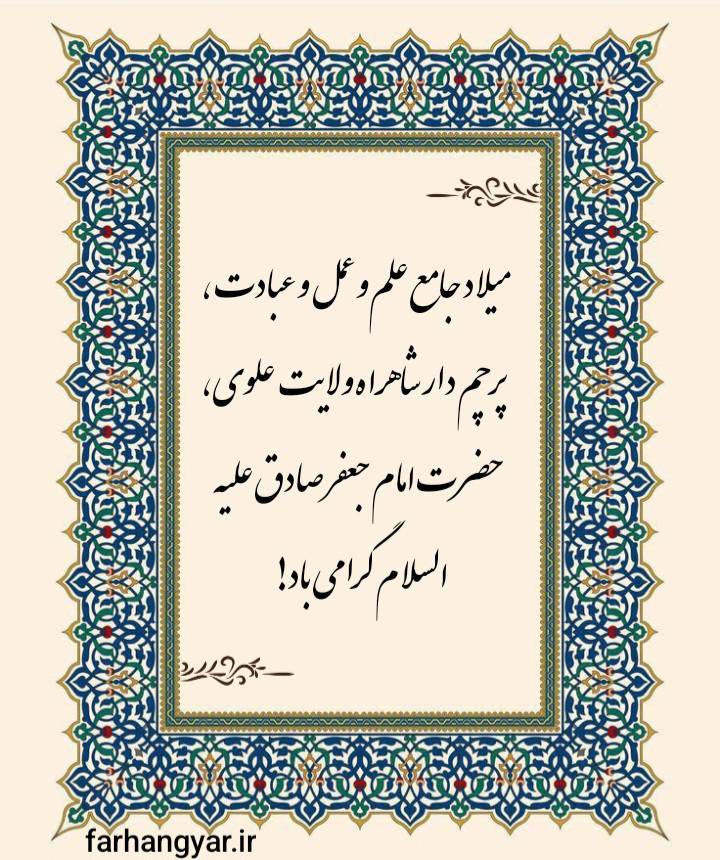 میلاد جامع علم و عمل و عبادت،
پرچم دار شاهراه ولایت علوی،
حضرت امام جعفر صادق علیه
السلام گرامی باد!
farhangyar.ir